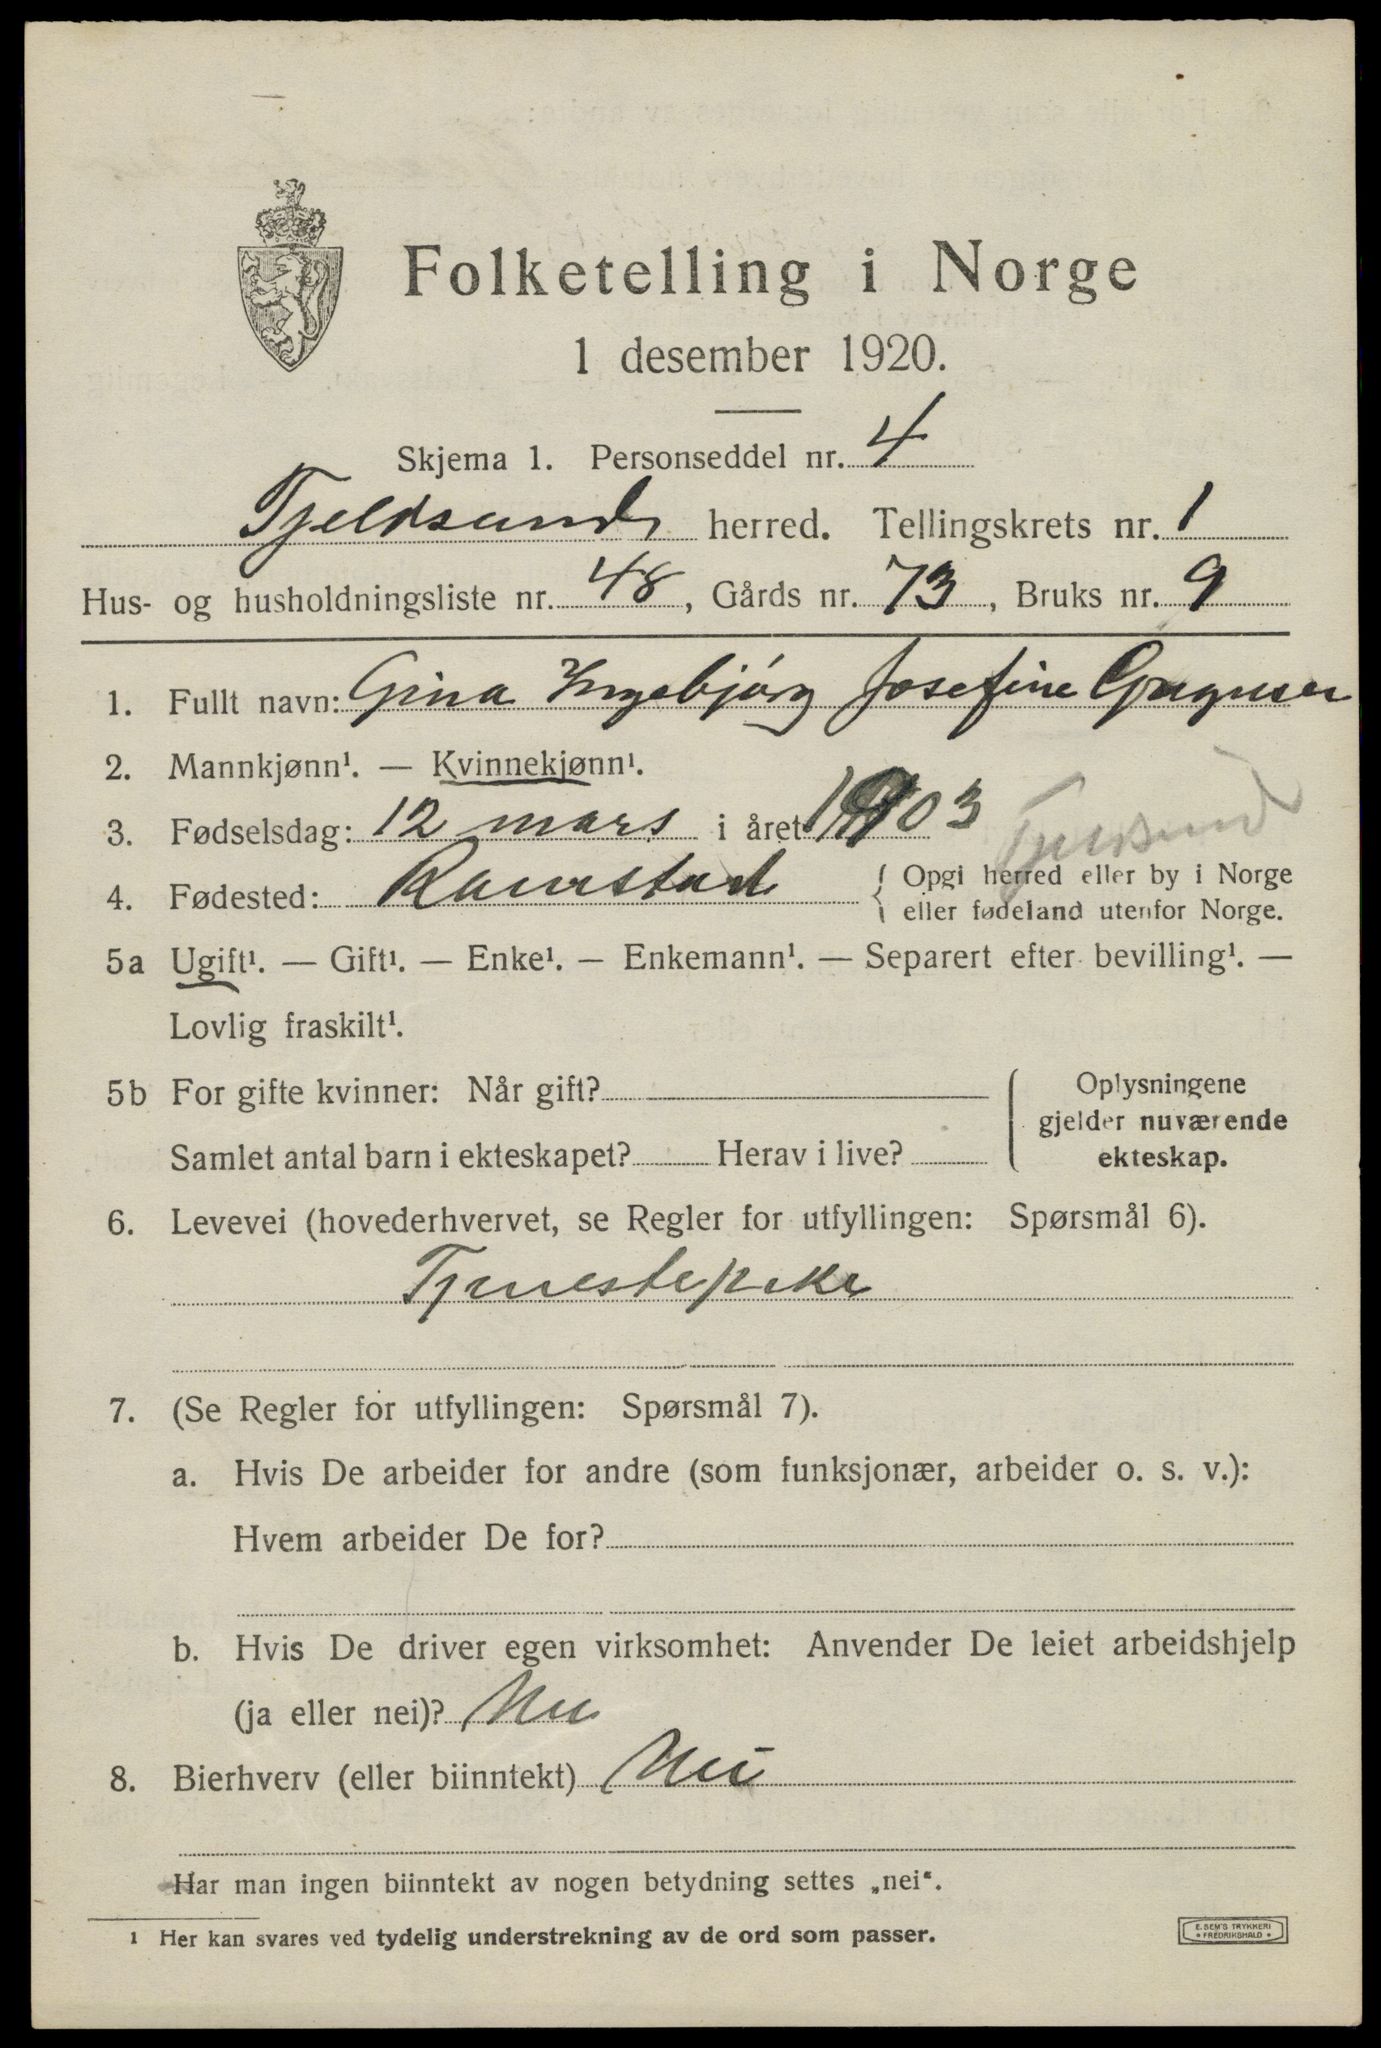 Folketelling i Norge
1 desember 1920.
Skjema 1. Personseddel nr. 4
Tjeldsund herred. Tellingskrets nr. 1
Hus- og husholdningsliste nr. 48, Gårds nr. 73, Bruks nr. 9
1. Fullt navn: Gina Ingebjørg Josefine
2. Mannkjønn¹. — Kvinnekjønn¹.
3. Fødselsdag: 12 mars i året 1903
Tjeldsund
4. Fødested: Ramstad { Opgi herred eller by i Norge
eller fødeland utenfor Norge.
5a Ugift¹. — Gift¹. — Enke¹. — Enkemann¹. — Separert efter bevilling¹. —
Lovlig fraskilt¹.
5b For gifte kvinner: Når gift?
Samlet antal barn i ekteskapet? Herav i live?
Oplysningene
gjelder nuværende
ekteskap.
6. Levevei (hovederhvervet, se Regler for utfyllingen: Spørsmål 6).
Tjenestepike
7. (Se Regler for utfyllingen: Spørsmål 7).
a. Hvis De arbeider for andre (som funksjonær, arbeider o. s. v.):
Hvem arbeider De for?
b. Hvis De driver egen virksomhet: Anvender De leiet arbeidshjelp
(ja eller nei)? Nei
8. Bierhverv (eller biinntekt) Nei
Har man ingen biinntekt av nogen betydning settes „nei“.
1 Her kan svares ved tydelig understrekning av de ord som passer.
E. SEM'S TRYKKERI
FREDRIKSHALD